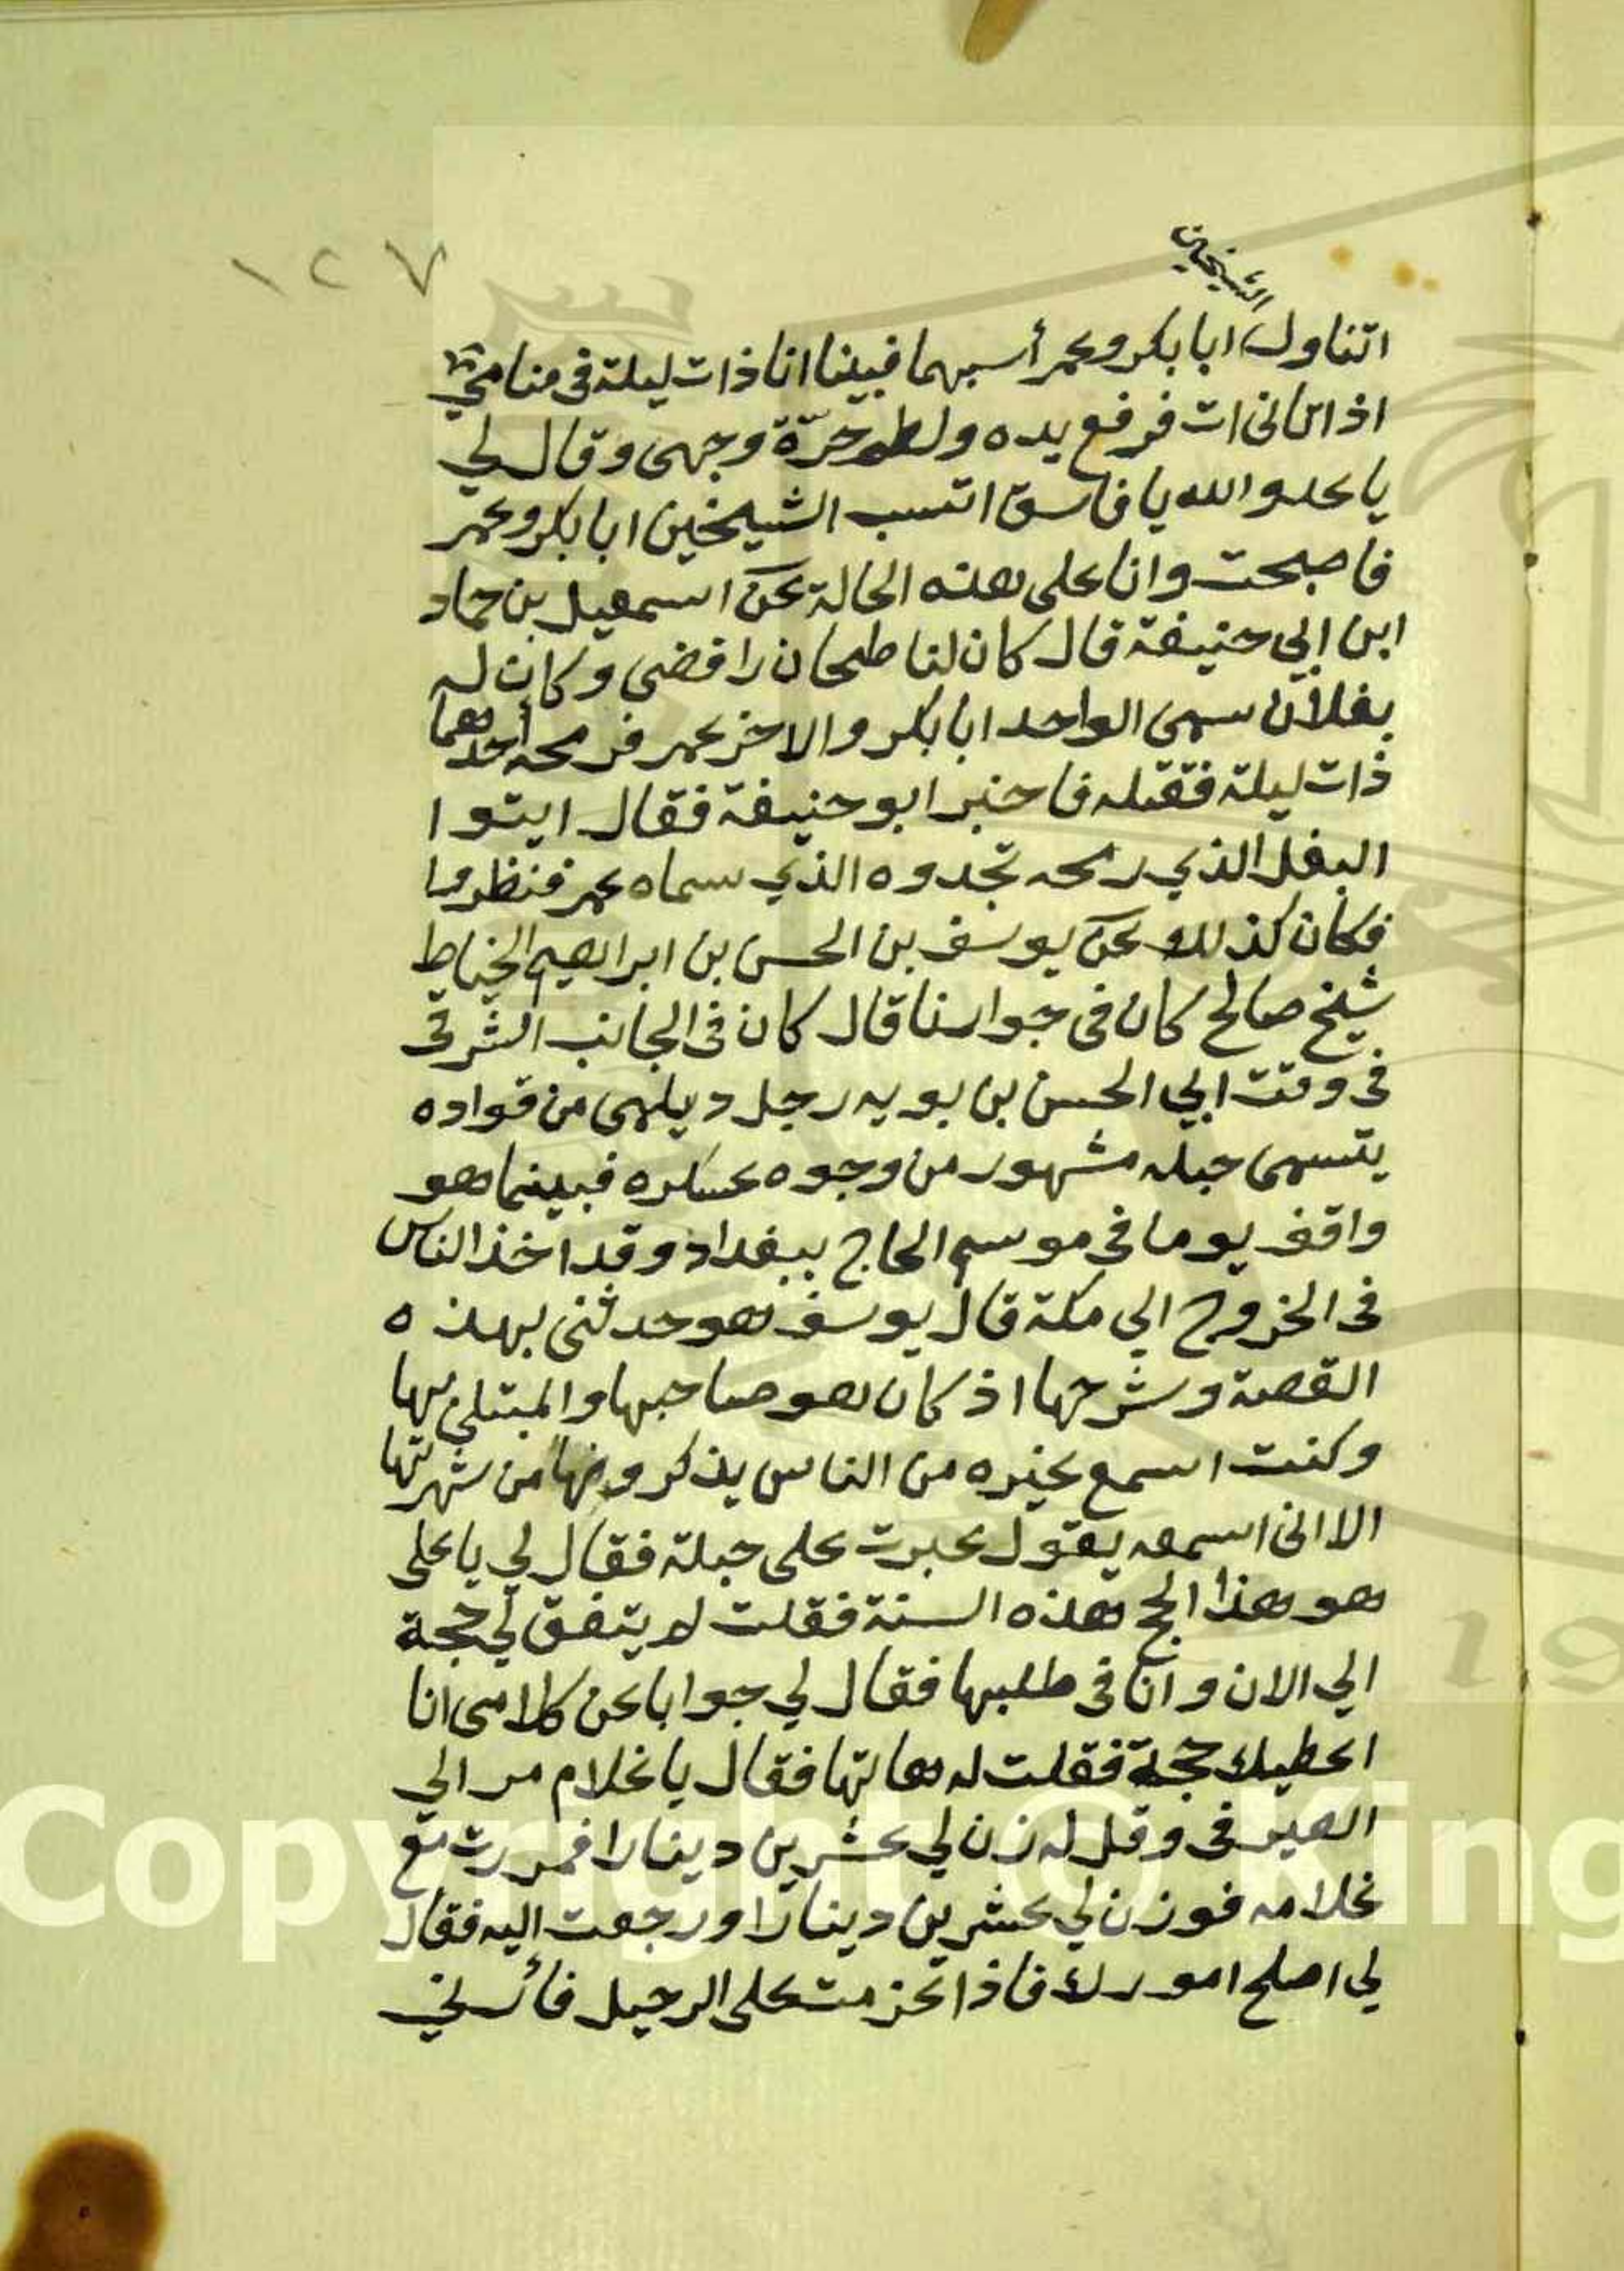 ١٢٧
الشيخين
اتناول ابا بكر وعمر أسبهما فبينا انا ذات ليلة في منامي
اذ اتاني ات فرفع يده ولطم حرّة وجهي وقال لي
يا عدو الله يا فاسق اتسب الشيخين ابا بكر وعمر
فاصبحت وانا على هذه الحالة عن اسمعيل بن حماد
ابن ابي حنيفة قال كان لنا طحان رافضي وكان له
بغلان سمى الواحد ابا بكر والاخر عمر فرمحه أحدهما
ذات ليلة فقتله فاخبر ابو حنيفة فقال ايتوا
البغل الذي رمحه تجدوه الذي سماه عمر فنظروا
فكان كذلك عن يوسف بن الحسن بن ابراهيم الخياط
شيخ صالح كان في جوارنا قال كان في الجانب الشرقي
في وقت ابي الحسن بن بويه رجل ديلمي من قواده
يتسمى جبله مشهور من وجوه عسكره فبينما هو
واقف يوما في موسم الحاج ببغداد وقد اخذ الناس
في الخروج الي مكة قال يوسف هو حدثني بهذه
القصة وشرحها اذ كان هو صاحبها والمبتلي بها
وكنت اسمع غيره من الناس يذكرونها من شهرتها
الا اني اسمعه يقول عبرت على جبلة فقال لي يا على
هو هذا الحج هذه السنة فقلت لم يتفق لي حجة
الي الان وانا في طلبها فقال لي جوابا عن كلامي انا
اعطيك حجة فقلت له هاتها فقال يا غلام مر الي
الصيرفي وقل له زن لي عشرين دينارا فمررت مع
غلامه فوزن لي عشرين دينارا ورجعت اليه فقال
لي اصلح امورك فاذا عزمت على الرحيل فأرني
Copyright © King
19